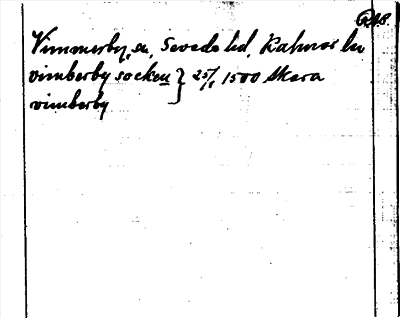 Vimmerby, sn, Sevede hd, Kalmar län
vimberby socken } 25/1 1500 Skara
vimberby